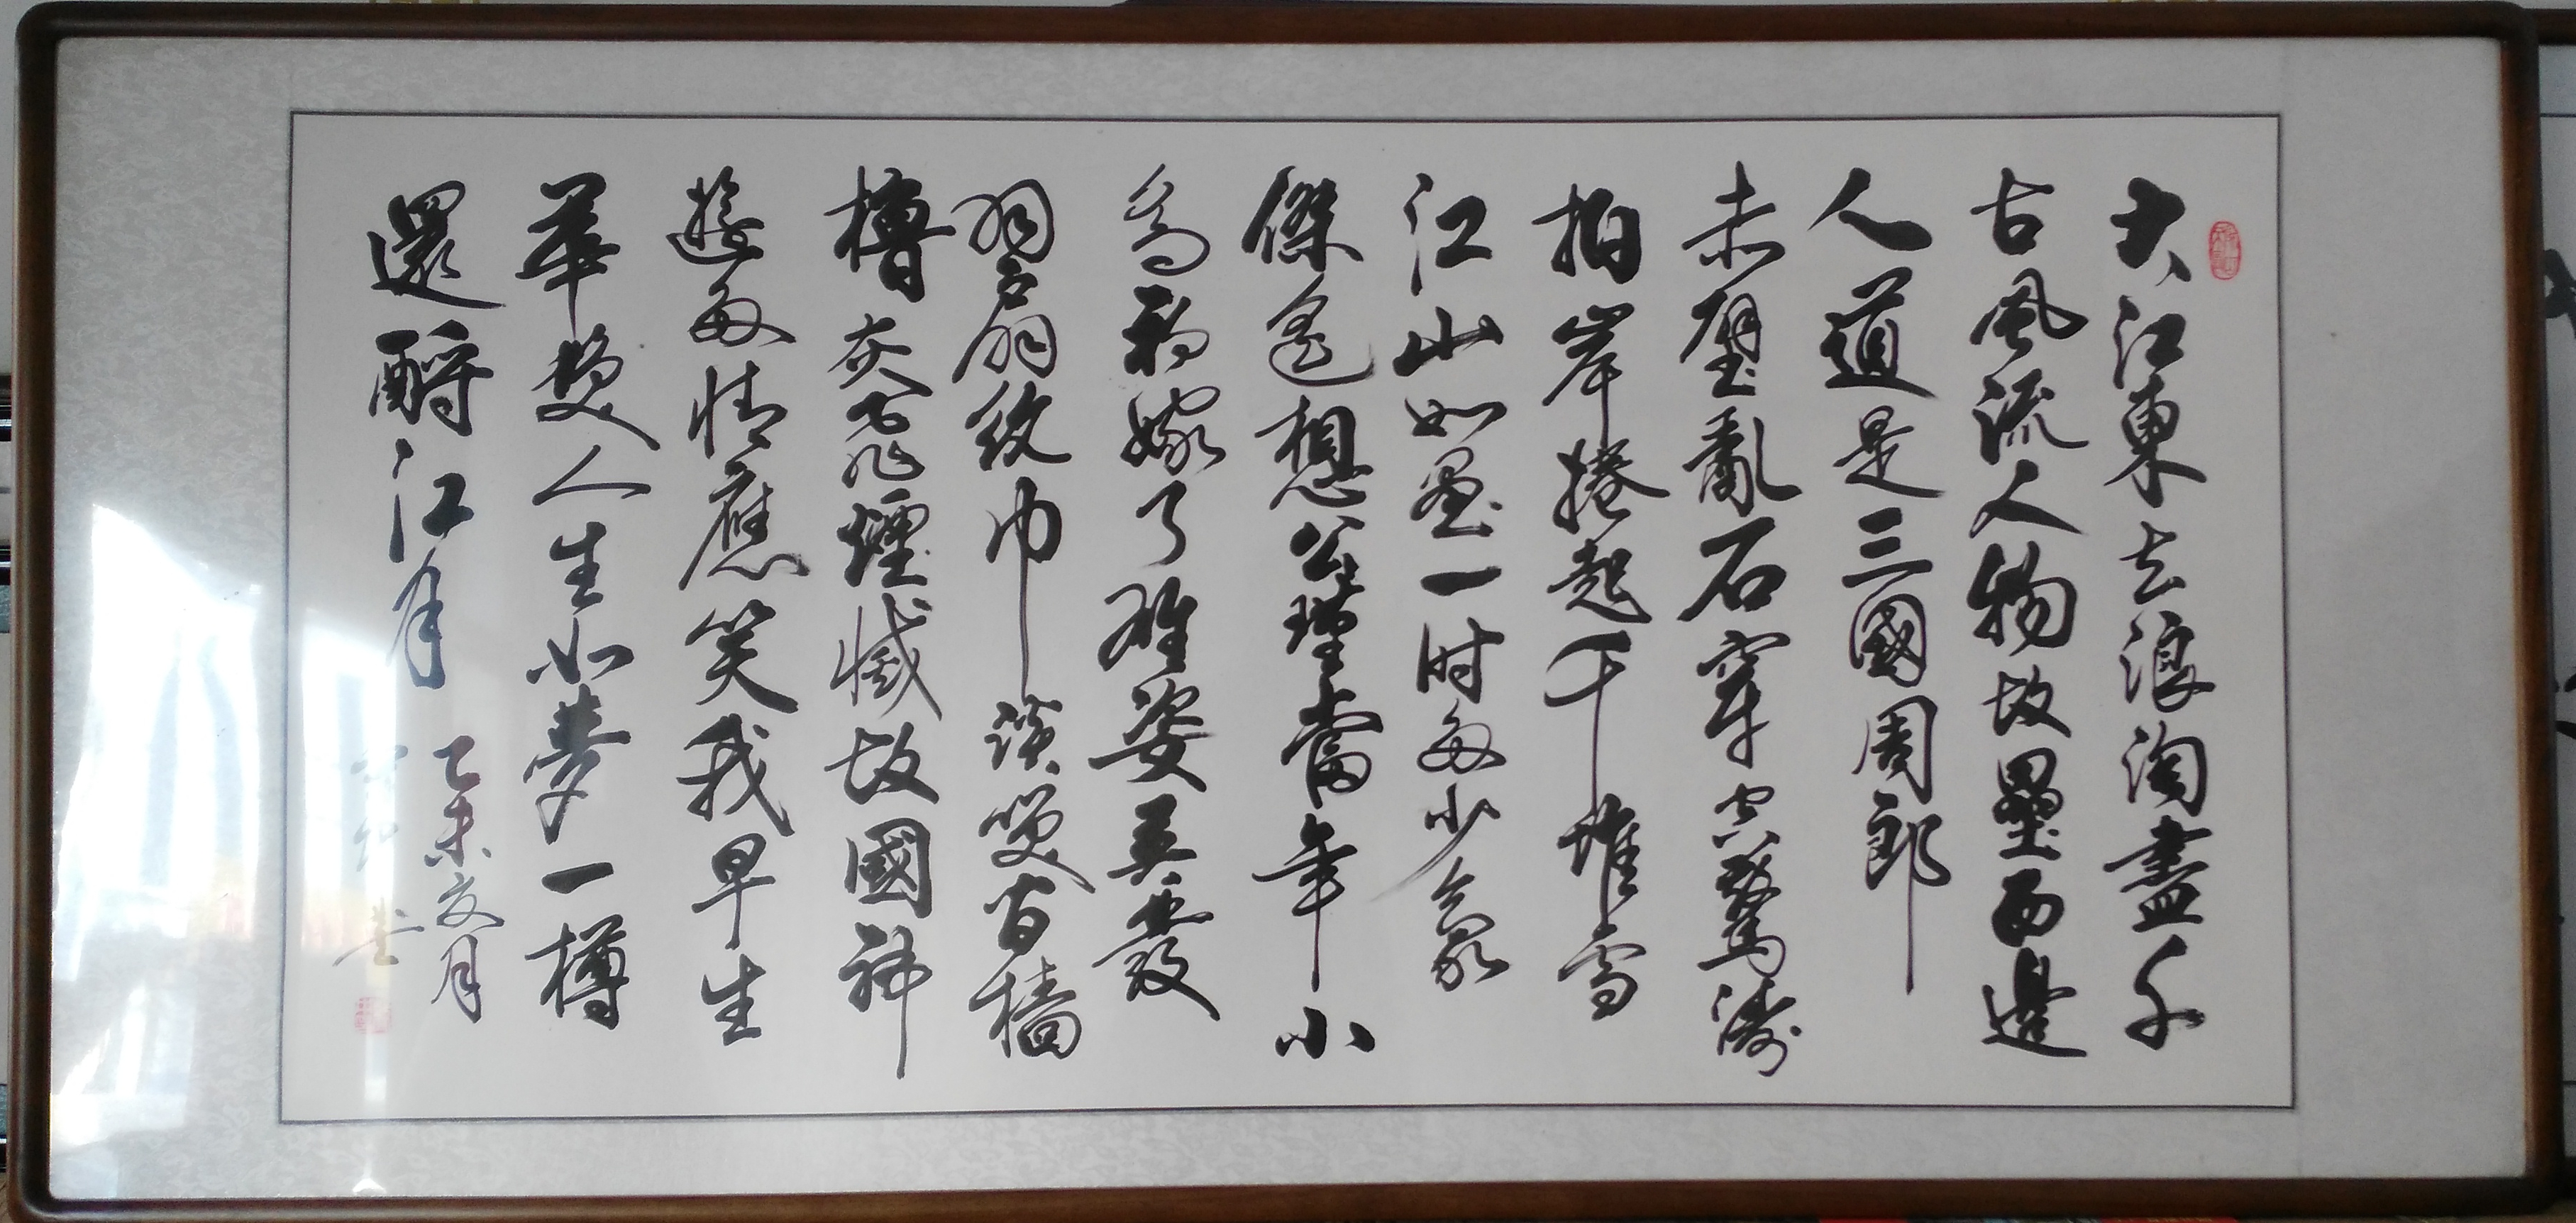 大江東去浪淘盡千
古風流人物故壘西邊
人道是三國周郎
赤壁亂石穿空驚濤
拍岸捲起千堆雪
江山如畫一時多少豪
傑遙想公瑾當年小
喬初嫁了雄姿英發
羽扇綸巾談笑間檣
櫓灰飛煙滅故國神
遊多情應笑我早生
華髮人生如夢一樽
還酹江月
乙未文月